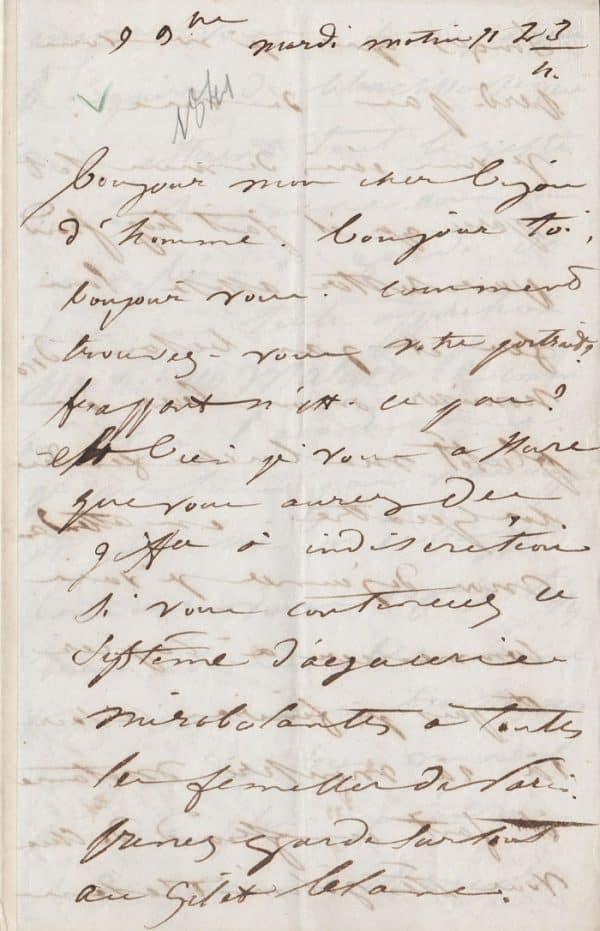 9 9bre mardi matin 11 h 3/4
1841
Bonjour mon cher bijou
d'homme. Bonjour toi,
bonjour vous. Comment
trouvez-vous votre portrait?
frappant n'est-ce pas?
eh bien je vous assure
que vous aurez des
giffles à indiscrétion
si vous continuez ce
système d'agaceries
mirobolantes à toutes
les femelles de Paris.
Prenez garde surtout
au gilet blanc.